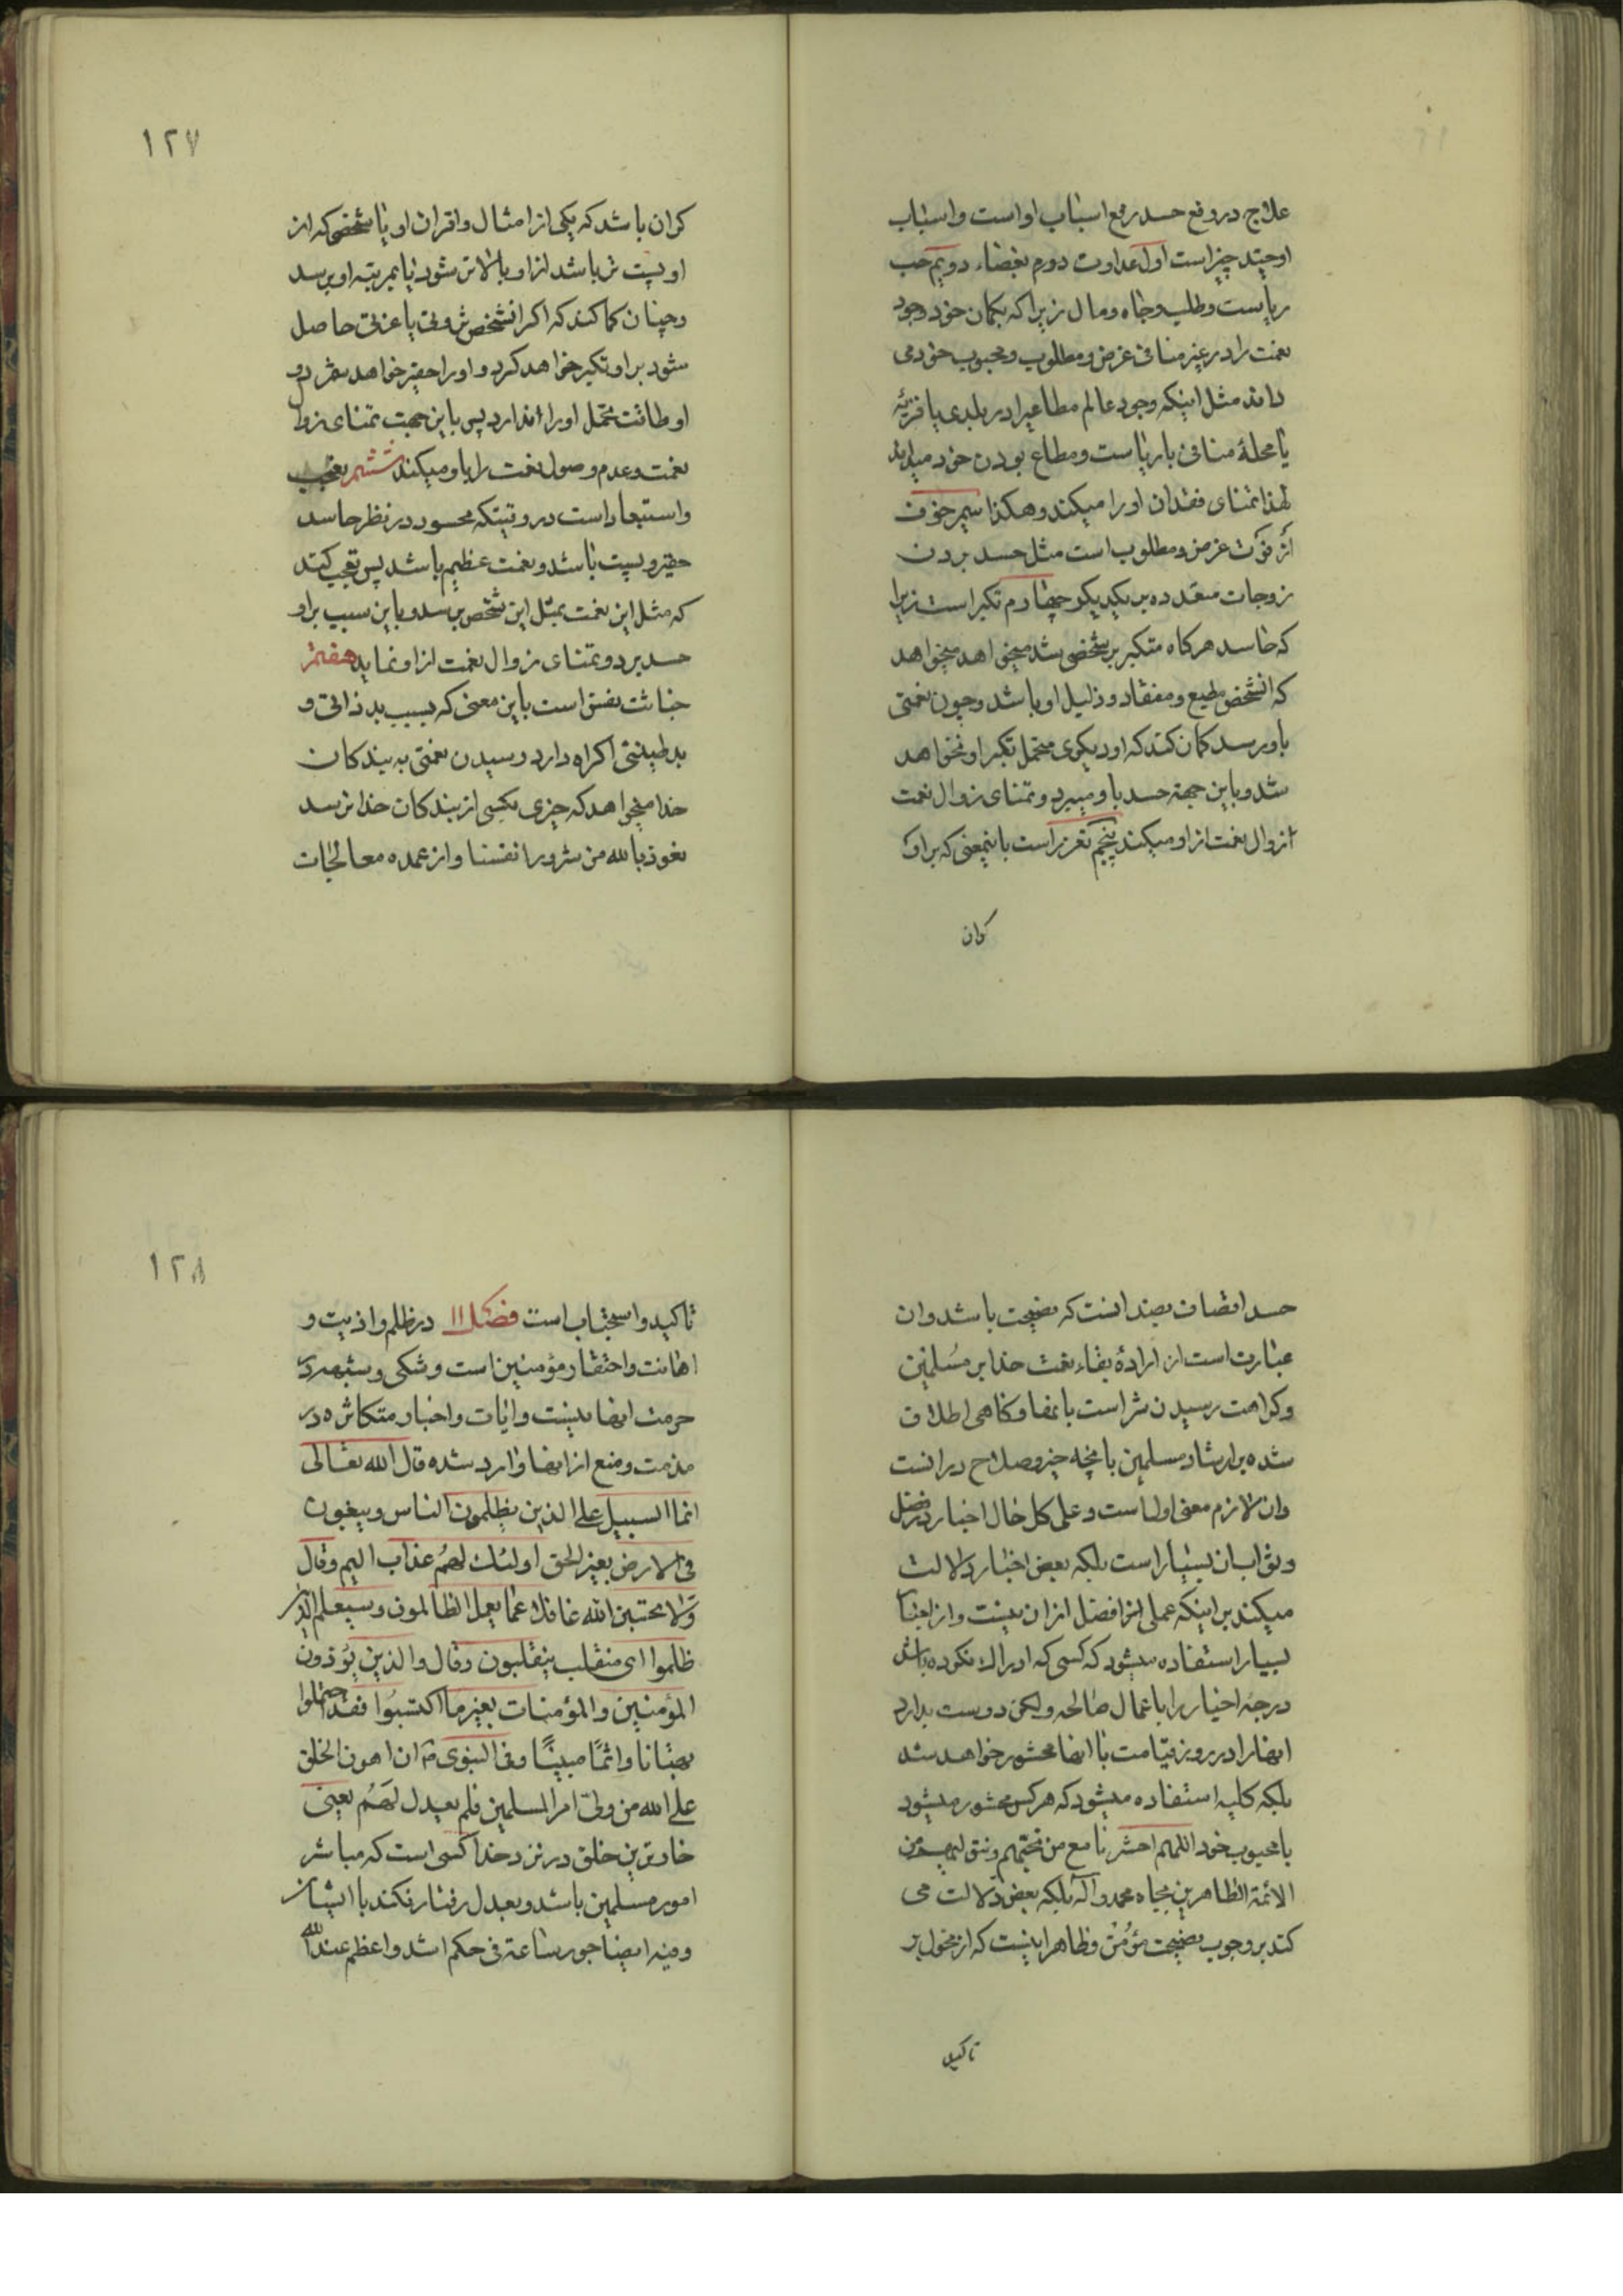 علاج در رفع حسد رفع اسباب او است و اسباب
او چند چیز است اول عداوت دوم بغضاء دویم حب
ریاست و طلب وجاه و مال زیرا که بکمان خود وجود
نعمت را در غیر منافی غرض و مطلوب و محبوب خود می
داند مثل اینکه وجود عالم مطاعیرا در بلدی یا قریهٔ
یا محلهٔ منافی با ریاست و مطاع بودن خود میداند
لهذا تمنای فقدان او را میکند و هکذا سیم خوف
از فوت غرض و مطلوب است مثل حسد بردن
زوجات متعدده بر یکدیکر چهارم تکبر است زیرا
که حاسد هرکاه متکبر بر شخصی شد میخواهد میخواهد
که انشخص مطیع و منقاد و ذلیل او باشد و چون نعمتی
باو رسد کمان کند که او دیکری متحمل تکبر او نخواهد
شد و باین جهة حسد باو میبرد و تمنای زوال نعمت
از زوال نعمت از او میکند پنجم تعزز است باینمعنی که بر او
کران
۱۲۷
کران باشد که یکی از امثال و اقران او یا شخصی که از
او پست تر باشد از او بالاتر شود یا بمرتبه او برسد
و چنان کما کند که اکر انشخص ثروتی یا عزتی حاصل
شود بر او تکبر خواهد کرد و او را حقیر خواهد شمرد و
او طاقت تحمل او را ندارد پس باین جهت تمنای زوال
نعمت و عدم وصول نعمت را باو میکند ششم تعجب
و استبعاد است در وقتیکه محسود در نظر حاسد
حقیر و پست باشد و نعمت عظیم باشد پس تعجب کند
که مثل این نعمت بمثل این شخص برسد و باین سبب بر او
حسد برد و تمنای زوال نعمت از او نماید هفتم
خباثت نفس است باین معنی که بسبب بد ذاتی و
بد طینتی اکراه دارد رسیدن نعمتی به بندکان
خدا میخواهد که چیزی بکسی از بندکان خدا نرسد
نعوذ بالله من شرور انفسنا و از عمده معالجات
حسد اتصاف بضد انست که نصیحت باشد و ان
عبارت است از ارادهٔ بقاء نعمت خدا بر مسلمین
و کراهت رسیدن شر است بانها و کاهی اطلاق
شده بر ارشاد مسلمین بانچه خیر و صلاح در انست
وان لازم معنی اول است و علی کل حال اخبار در فضل
و ثواب ان بسیار است بلکه بعض اخبار دلالت
میکند بر اینکه عملی افضل از ان نیست و از اخبار
بسیار استفاده میشود که کسی که ادراک نکرده باشد
درجهٔ اخیار را باعمال صالحه ولکن دوست بدارد
انها را در روز قیامت با انها محشور خواهد شد
بلکه کلیه استفاده میشود که هر کس محشور میشود
با محبوب خود اللهم احشرنا مع من نحبهم و نتق لهم من
الائمة الطاهرین بجاه محمد و آله بلکه بعض دلالت می
کند بر وجوب نصیحت مؤمن و ظاهر اینست که از محمول بر
تاکید
۱۲۸
تاکید و استحباب است فصل ۱۱ در ظلم و اذیت و
اهانت و احتقار مؤمنین است و شکی و شبهه در
حرمت انها نیست و ایات و اخبار متکاثره در
مذمت و منع از انها وارد شده قال الله تعالی
انما السبیل علی الذین یظلمون الناس و یبغون
فی الارض بغیر الحق اولئک لهم عذاب الیم و قال
ولا تحسبن الله غافلا عما یعمل الظالمون و سیعلم الذین
ظلموا ای منقلب ینقلبون و قال والذین یؤذون
المؤمنین و المؤمنات بغیر ما اکتسبوا فقد احتملوا
بهتانا و اثمًا مبینًا و فی النبوی ص ان اهون الخلق
علی الله من ولی امر المسلمین فلم یعدل لهم یعنی
خارترین خلق در نزد خدا کسی است که مباشر
امور مسلمین باشد و بعدل رفتار نکند با ایشان
و منه ایضا جور ساعة فی حکم اشد و اعظم عند الله